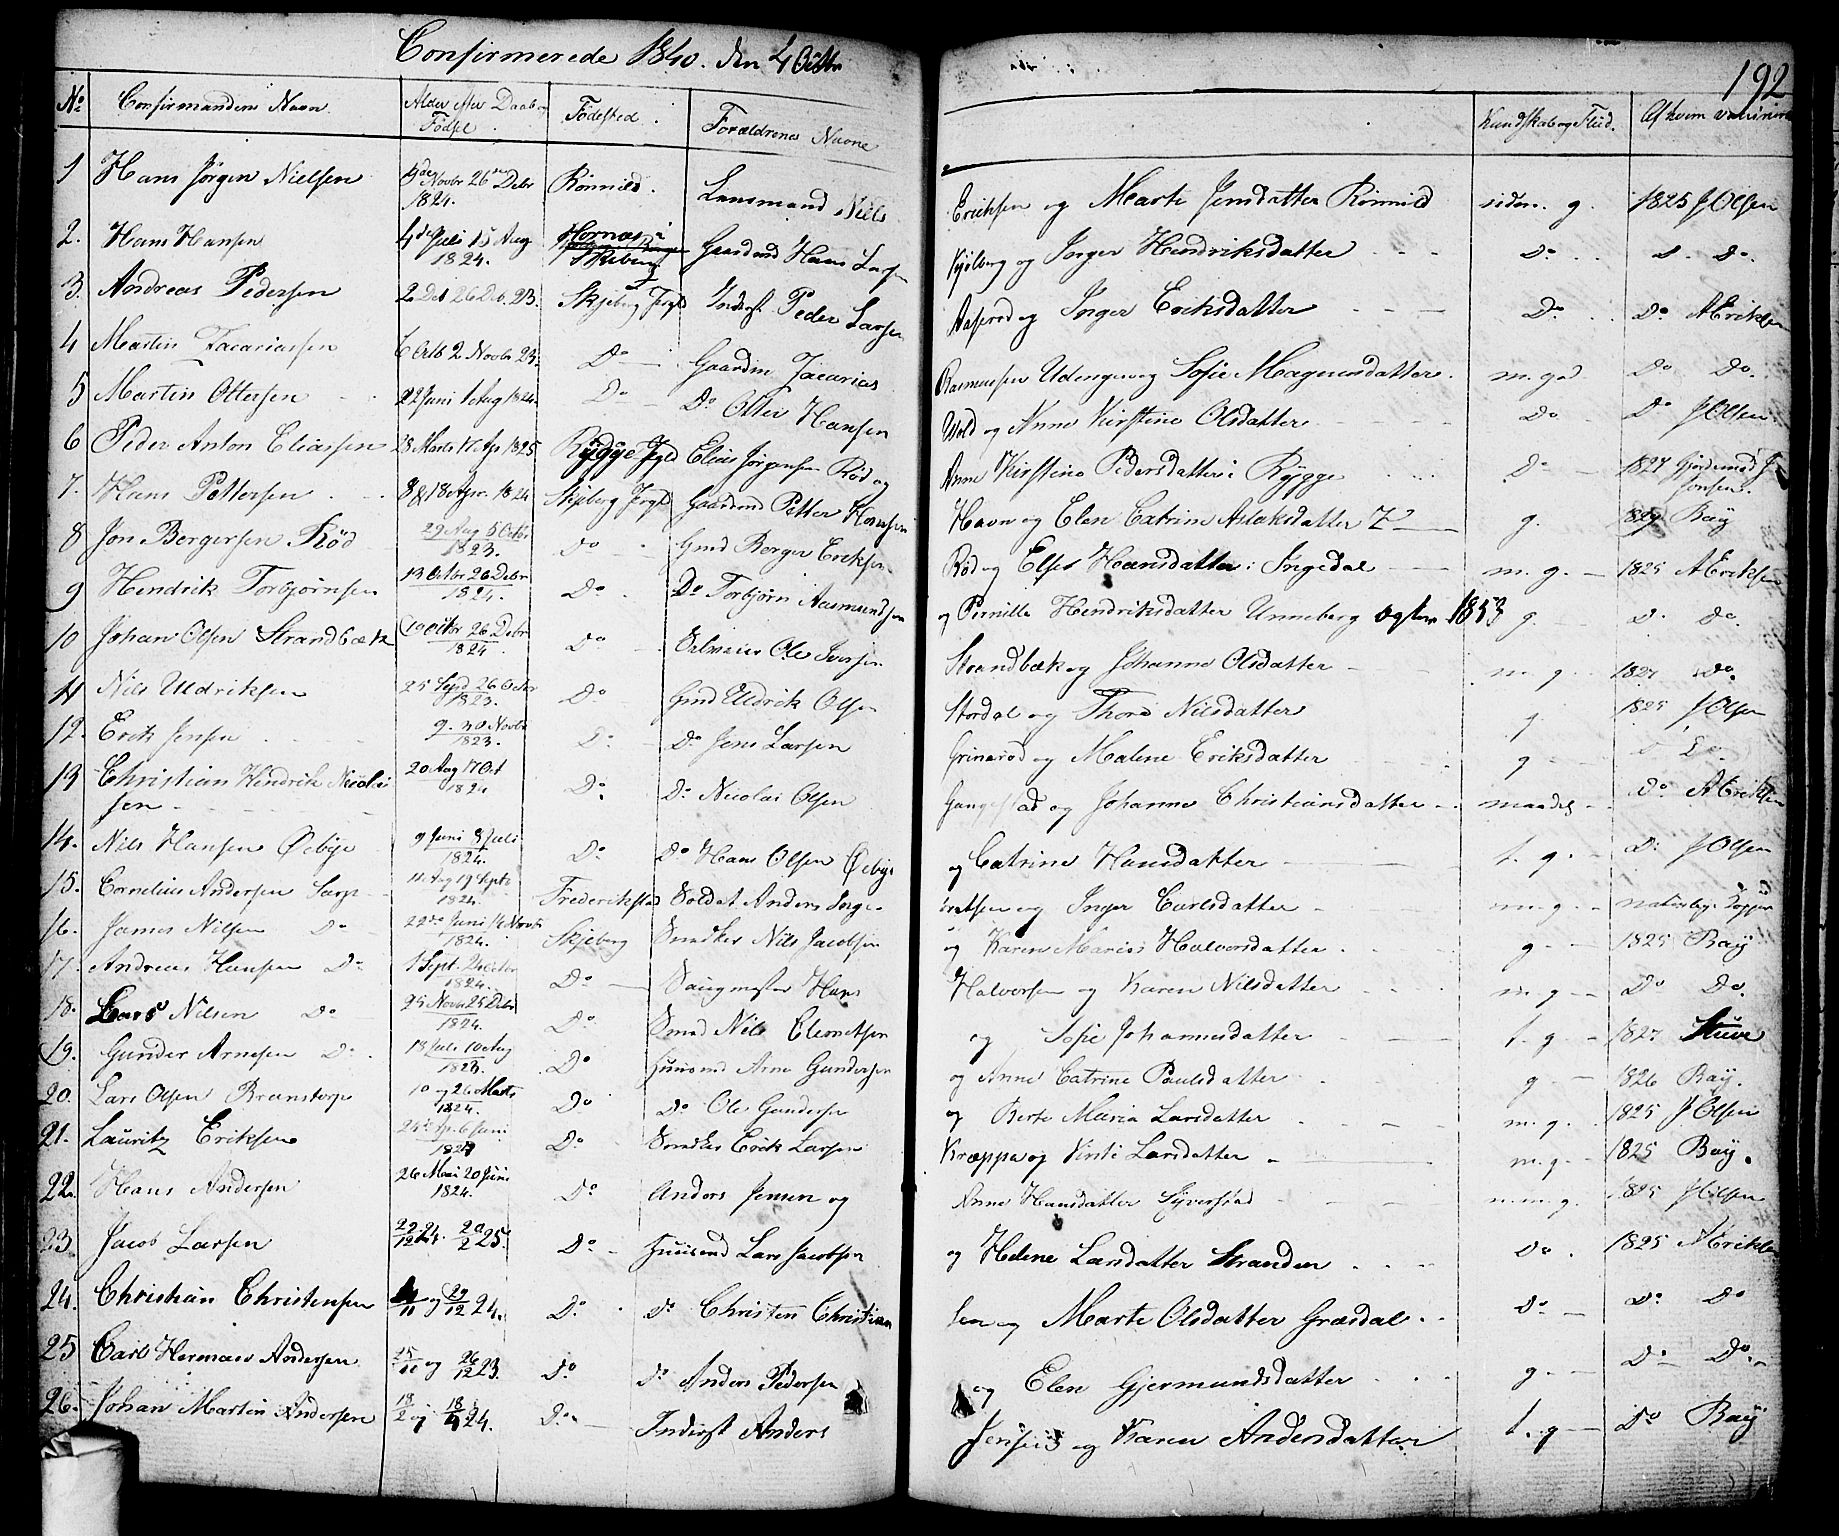 Confirmerede 1840. den 4 Octbr
192
No Confirmandens Navn. Alder efter Daab og Fødsel. Fødested. Forældrenes Navne Kundskab og Flid. Af hvem vaccineret
1 Hans Jörgen Nielsen 4de Novbr 26de Debr 1824. Lensmand Niels Eriksen og Marte Jensdatter g. 1825 J Olsen
2. Hans Hansen 4de Juli 15 Aug 1824. Hornæs i Skeberg Gaardmd Hans Larsen og Inger Hendriksdatter Do Do.
3. Andreas Pedersen 2 Oct 26 Deb. 23. Skjeberg Prgld Inderst Peder Larsen og Inger Eriksdatter Do Do AEriksen
4 Martin Zacariassen 6 Octb 2 Novbr 23. Do Gaardm Zacarias Rasmussen Udengen og Sofie Magnusdatter m. g Do Do.
5 Martin Ottersen 22 Juni 1 Aug 1824. Do Do Otter Hansen Wold og Anne Kirstine Olsdatter Do Do J Olsen
6 Peder Anton Eliassen 23 Marts 17 Apr 1825 Rygge Prgld Elias Jörgensen Röd og Anne Kirstine Pedersdatter i Rygge Do 1827
7. Hans Pettersen 8 & 18 Apr. 1824 Skjeberg Prgld Gaardmd Petter Havn og Elen Catrine Aslaksdatter g. 1827 Bay
8 Jon Bergersen Röd 29 Aug 5 Octbr 1823. Do Gmd Berger Eriksen Röd og Else Hansdatter i Ingedal m. g. 1825 AEriksen
9 Hendrik Torbjörnsen 13 Octbr 26 Debr 1824. Do Do Torbjörn Aasmundsen og Pernille Hendriksdatter Unneberg 1853 g. Do.
10 Johan Olsen Strandbæk 10 Octbr 26 Debr 1824. Do Ole Iversen Strandbæk og Johanne Olsdatter m. g. 1827 Do.
11 Nils Uldriksen 25 Sepd 26 Octbr 1823. Do Gmd Uldrik Olsen Stordal og Thore Nilsdatter g. 1825 J Olsen
12. Erik Jensen 9. 30 Novbr 1823. Do Do Jens Larsen Grimsröd og Malene Eriksdatter g
13 Christian Hendrik Nicolai
sen 20 Aug 17 Oct 1824 Do Do Nicolai Olsen og Johanne Christiansdatter maadel Do AEriksen
14. Nils Hansen Öebye 9 Juni 8 Juli 1824. Do Do Hans Olsen Öebye og Catrine Hansdatter t. g. Do J Olsen
15. Cornelius Andersen Sarp 11 Aug 19 Septb 1824. Frederikstad Soldat Anders og Inger Carlsdatter m. g.
16. James Nilsen Do 29de Juni 14 Novbr 1824. Skjeberg Smedker Nils Jacobsen og Karen Marie Halvorsdatter g. 1825 Bay
17. Andreas Hansen Do 1 Sept. 24 Octbr 1824. Do Saugmester Hans Halvorsen og Karen Nilsdatter m. g. Do Do.
18. Lars Nilsen Do 25 Novbr 25 Debr 1824. Do Smed Nils Clemetsen og Sofie Johannesdatter t. g. 1827 Stuve
19. Gunder Arnesen Do 18 Juli 10 Aug 1823. Do Huusmd Arne Gundersen og Anne Catrine Paulsdatter g. 1826 Bay.
20. Lars Olsen Branstorp 10 og 26 Marts 1824. Do Do Ole Gundersen og Berte Maria Larsdatter m. g. 1825 J Olsen
21. Lauritz Eriksen Do Smedker Erik Larsen Kræppa og Kirsti Larsdatter m. g. 1825 Bay.
22. Hans Andersen 26 Mai 20 Juni 1824. Do Anders Jensen og Anne Hansdatter m. g. 1825 J Olsen
23. Jacob Larsen 22/12 24. 20/2 25. Do Huusmd Lars Jacobsen og Helene Larsdatter Stranden Do. 1825 AEriksen
24. Christian Christensen 11 og 29/12 24. Do Do Christen Christian
sen og Marte Olsdatter Græsdal Do Do Do
25 Carl Herman Andersen 25/11 og 26/12 23. Do Do Anders Pedersen og Elen Gjermundsdatter g. Do Do.
26. Johan Martin Andersen 13/2 og 18/4 24. Do Inderst Anders Jensen og Karen Andersdatter t. g Do Bay